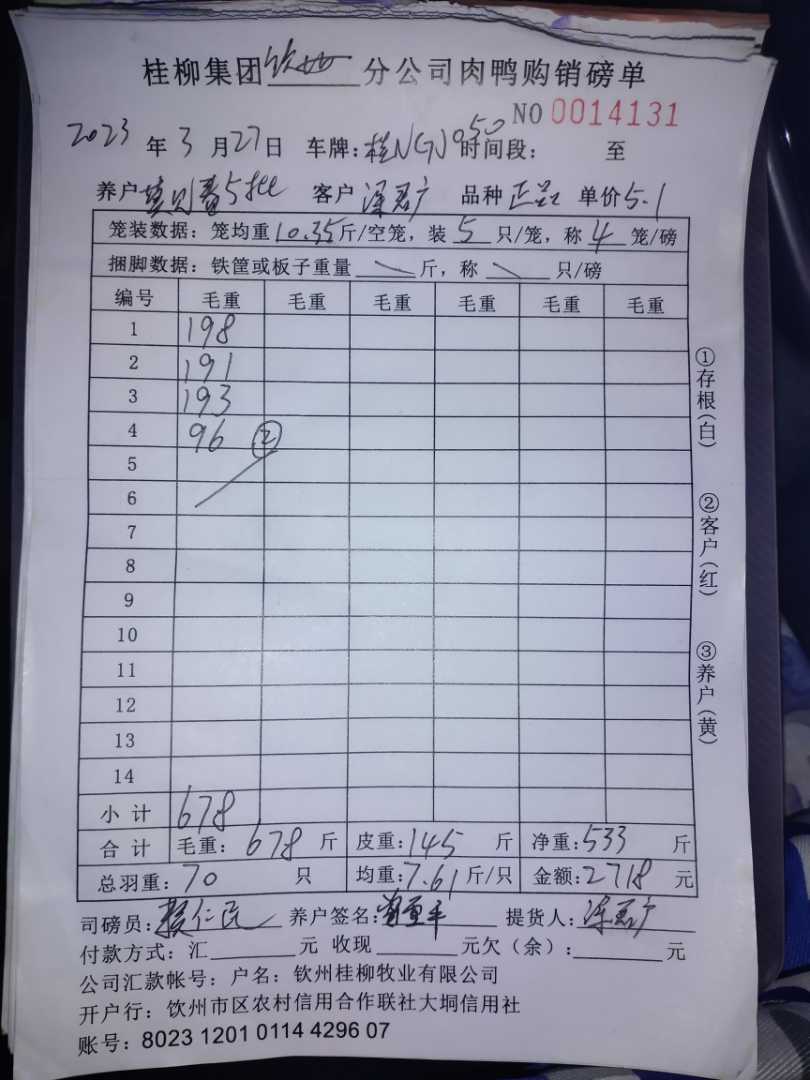 桂柳集团钦州分公司肉鸭购销磅单
NO 0014131
2023年3月27日 车牌:桂N 050 时间段: 至
养户 5批 客户 广 品种正品 单价5.1
笼装数据:笼均重10.35斤/空笼,装5只/笼,称4笼/磅
捆脚数据:铁筐或板子重量 斤,称 只/磅
编号 毛重 毛重 毛重 毛重 毛重 毛重
1 198
2 191
3 193
4 96 ②
5
6
7
8
9
10
11
12
13
14
小计 678
合计 毛重:678斤 皮重:145斤 净重:533斤
总羽重:70只 均重:7.61斤/只 金额:2718元
司磅员: 仁 养户签名: 提货人: 广
付款方式:汇 元 收现 元欠(余): 元
公司汇款帐号:户名:钦州桂柳牧业有限公司
开户行:饮州市区农村信用合作联社大垌信用社
账号:8023 1201 0114 4296 07
①存根(白)
②客户(红)
③养户(黄)